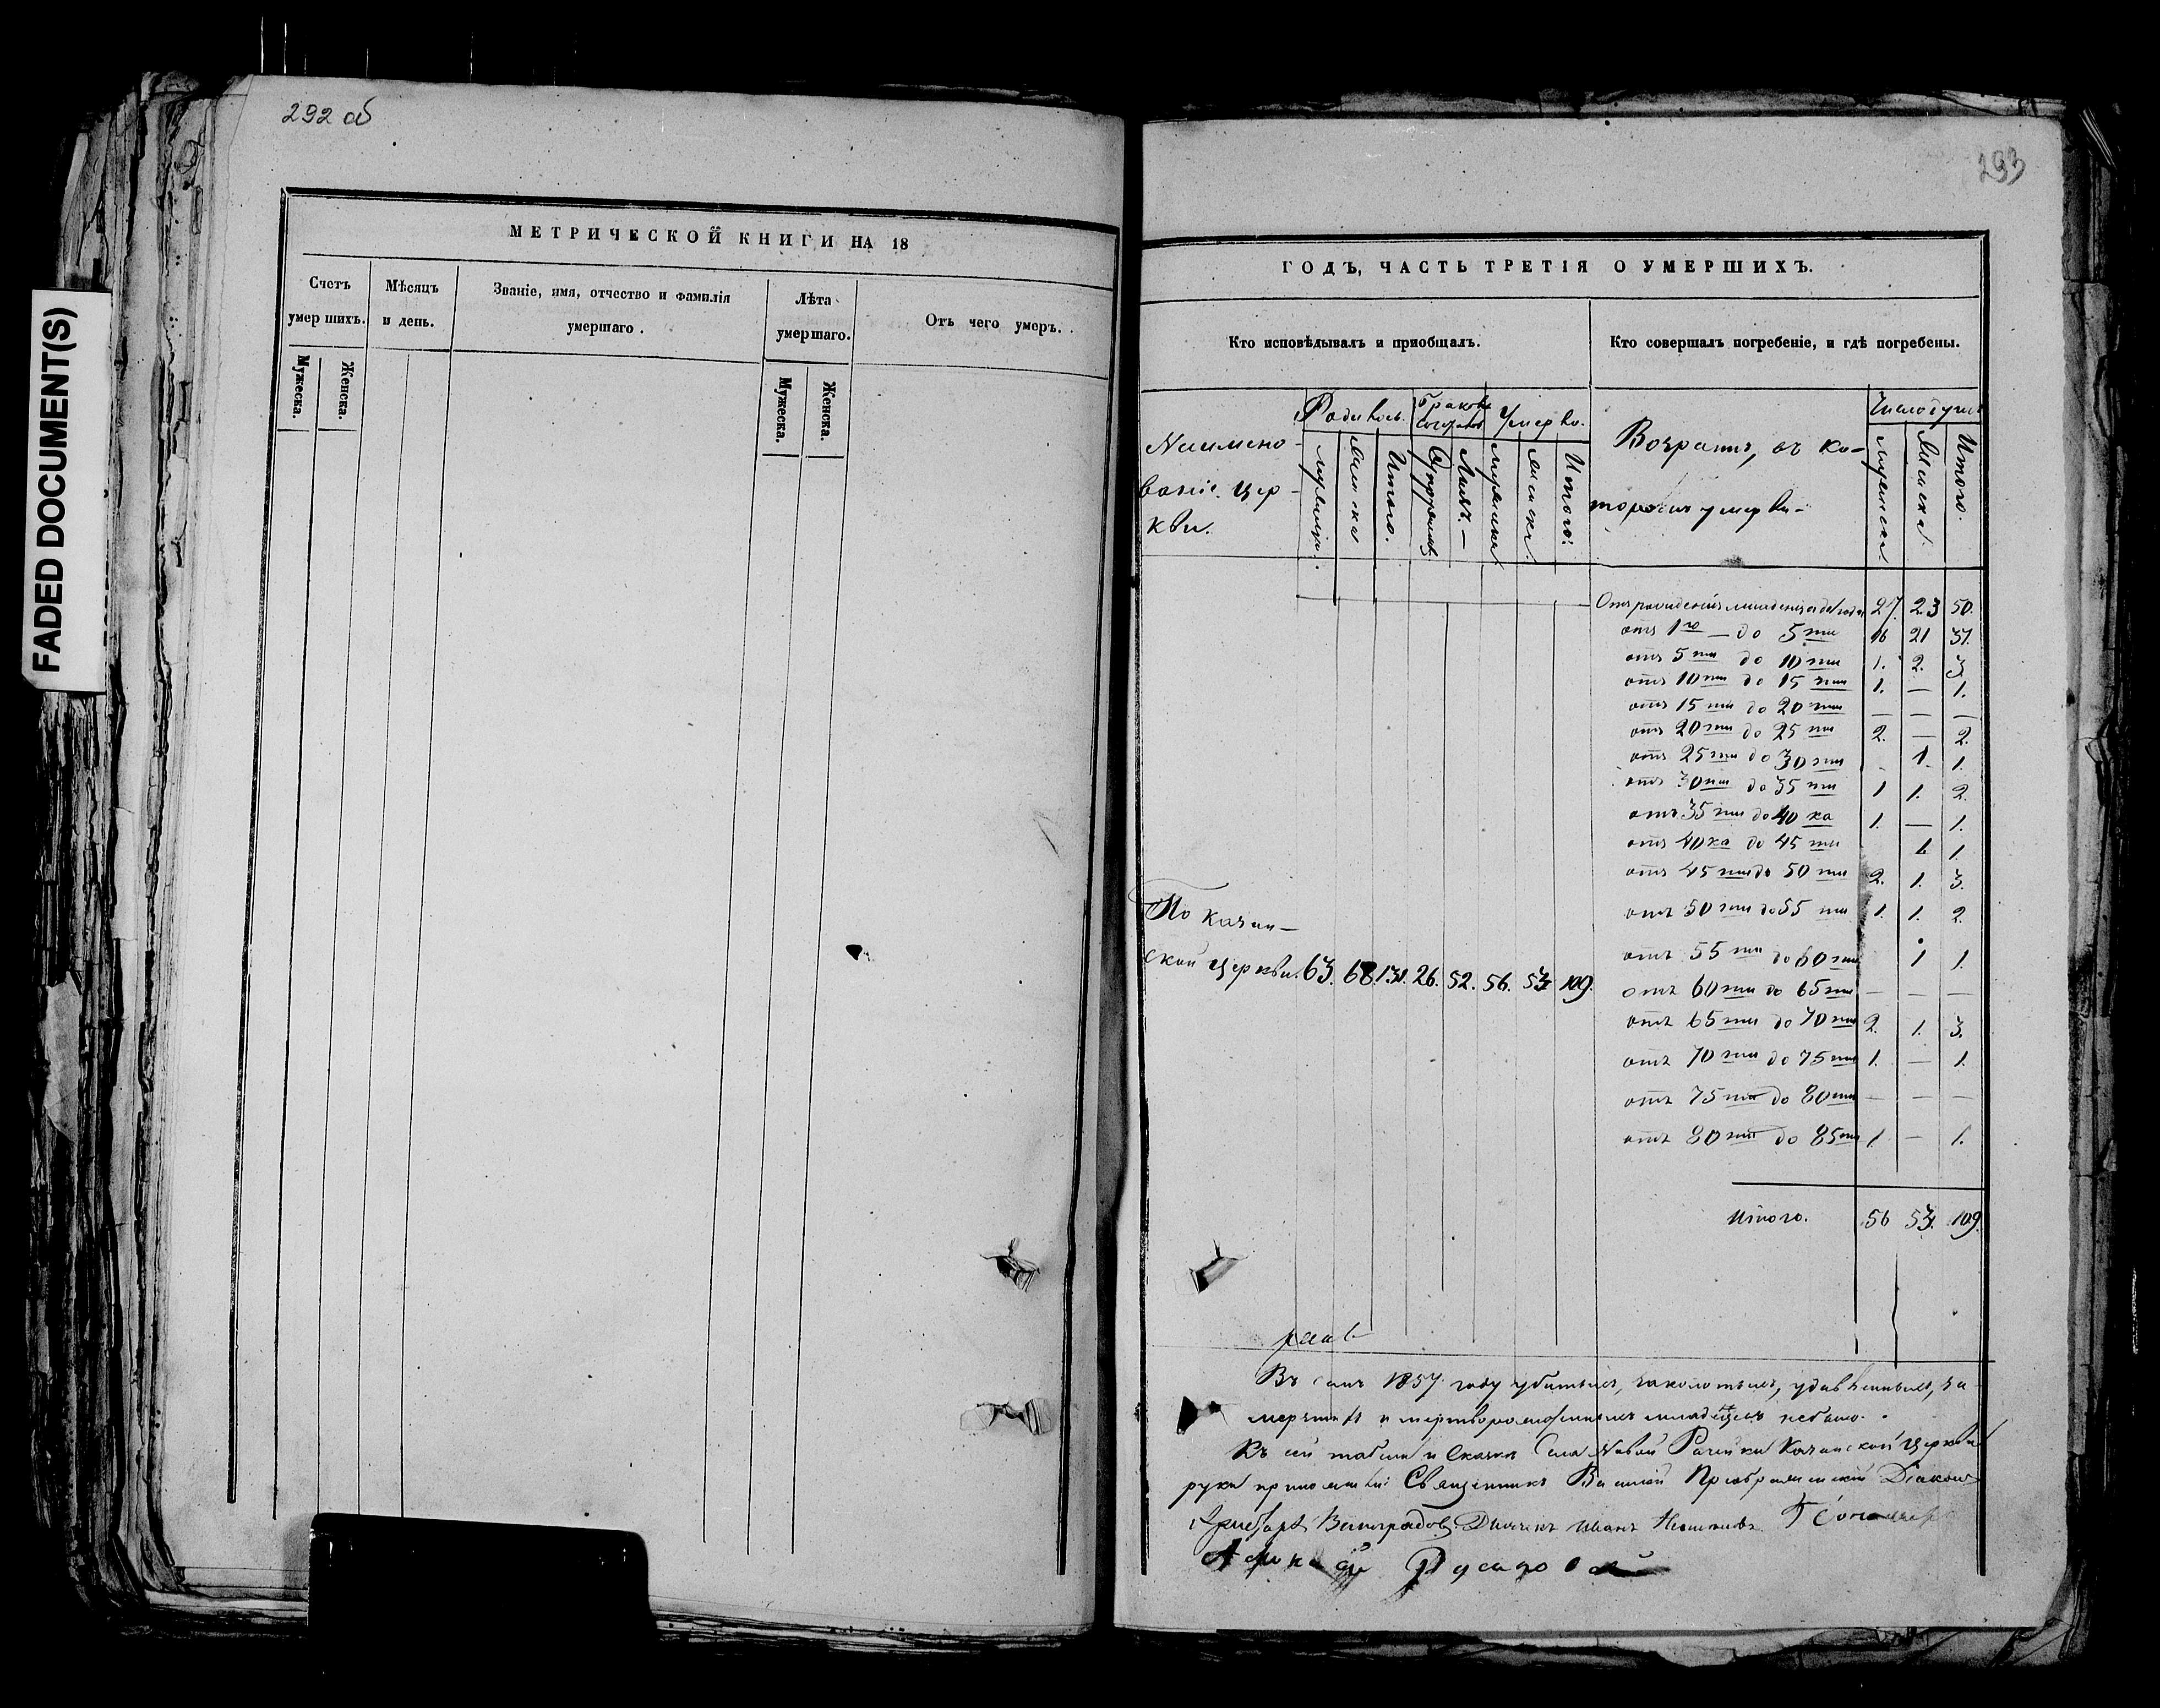 292 об
МЕТРИЧЕСКОЙ КНИГИ НА 18
Счетъ умер шихъ.
Мѣсяцъ и день.
Званіе, имя, отчество и фамилія умершаго.
Лѣта умершаго.
Отъ чего умеръ.
Мужеска.
Женска.
Мужеска.
Женска.
FADED DOCUMENT(S)
293
ГОДЪ, ЧАСТЬ ТРЕТІЯ О УМЕРШИХЪ.
Кто исповѣдывалъ и приобщалъ.
Кто совершалъ погребеніе, и гдѣ погребены.
Наимено-
ваніе цер-
кви.
Родилось.
Браковъ
Умерло.
Возрастъ, въ ко-
торомъ умерли
Число душъ
мужеска
женска
Итого.
Лицъ.
мужеска
женска
Итого.
мужеска
женска
Итого.
Отъ рожденія младенца до года 27. 23 50.
отъ 1го — до 5ти 16 21 37.
отъ 5ти до 10ти 1. 2. 3.
отъ 10ти до 15ти 1. — 1.
отъ 15ти до 20ти — — —
отъ 20ти до 25ти 2. — 2.
отъ 25ти до 30ти - 1. 1.
отъ 30ти до 35ти 1 1. 2.
отъ 35ти до 40ка 1. — 1.
отъ 40ка до 45ти 1 1.
отъ 45ти до 50ти 2. 1. 3.
отъ 50ти до 55ти 1. 1. 2.
отъ 55ти до 60ти 1 1.
отъ 60ти до 65ти — — —
отъ 65ти до 70ти 2. 1. 3.
отъ 70ти до 75ти 1. — 1.
отъ 75ти до 80ти — — —
отъ 80ти до 85ти 1. — 1.
По Казан-
ской церкви. 63. 68. 131. 26. 52. 56. 53. 109.
Итого. 56 53. 109.
Въ семъ 1857 году убитыхъ, заколотыхъ, удавленныхъ, за-
мерзшихъ и мертворожденныхъ младенцевъ небыло.
Къ сей Села Новой Рачейки Казанской церкви
руки приложили: Священникъ Василій Преображенскій Діаконъ
Виноградовъ Дьячекъ Иванъ Пономарь